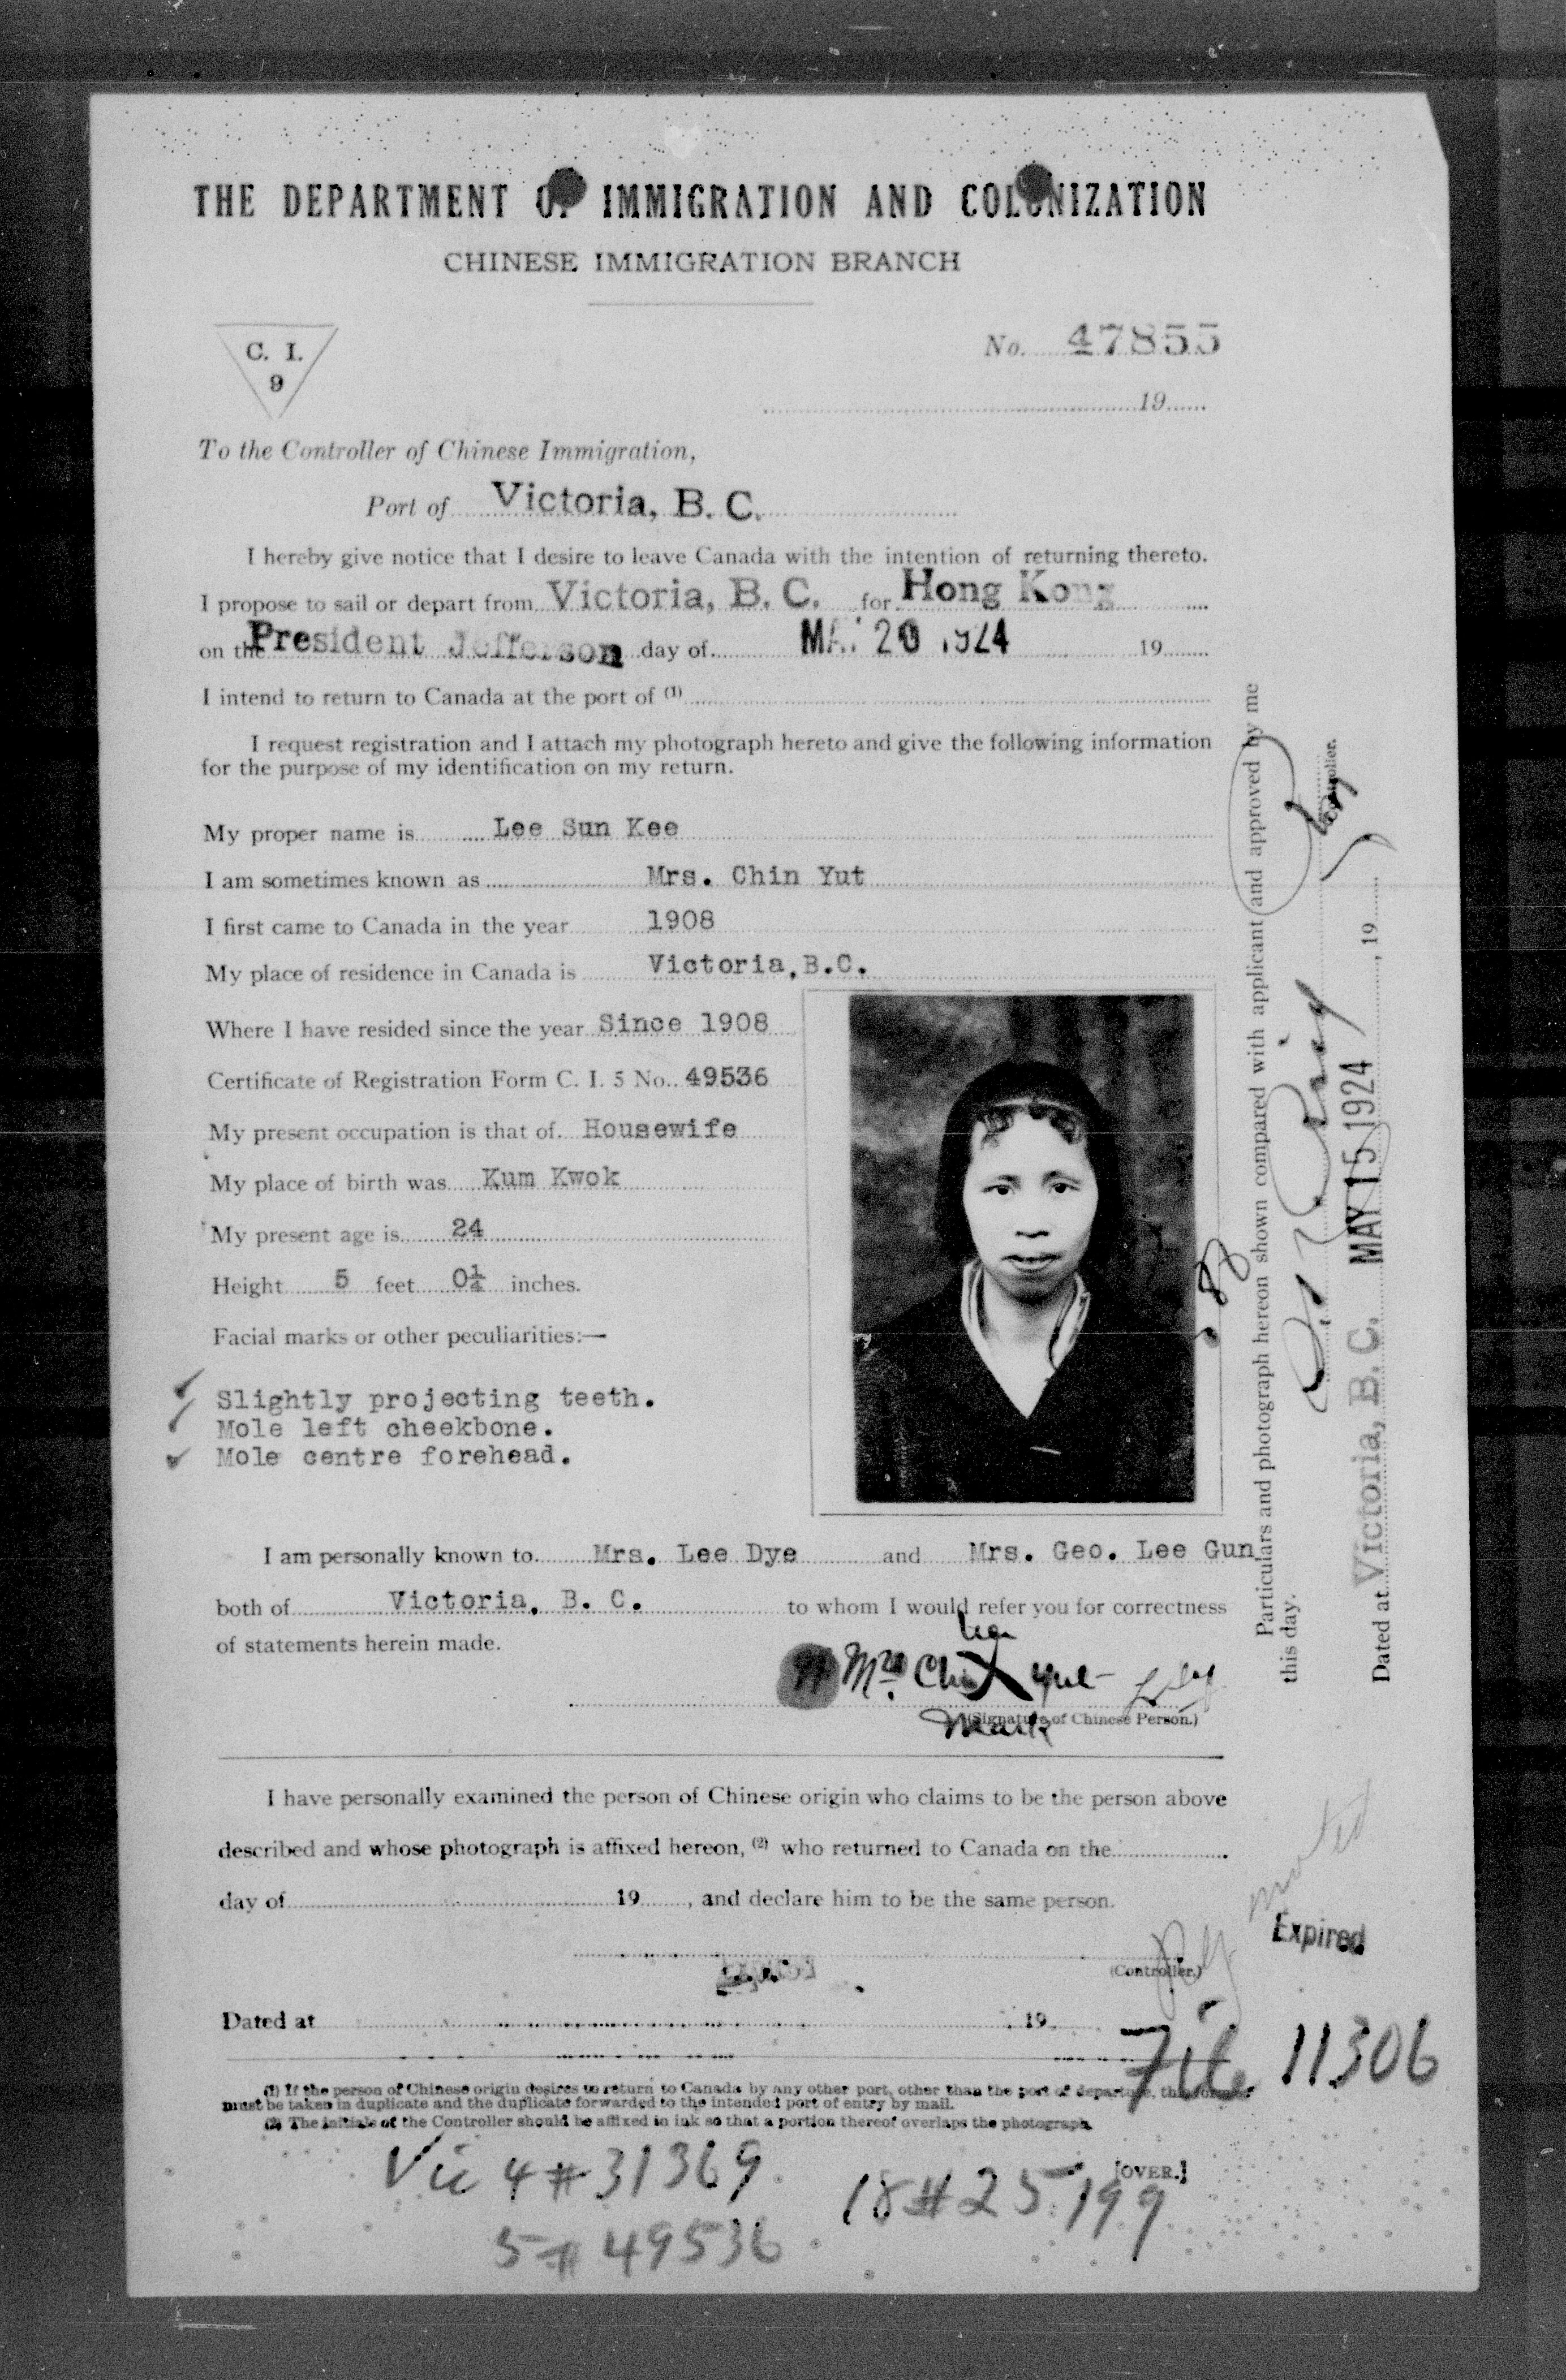 THE DEPARTMENT OF IMMIGRATION AND COLONIZATION
CHINESE IMMIGRATION BRANCH
C. I.
9
No. 47855
19
To the Controller of Chinese Immigration,
Port of Victoria, B. C.
I hereby give notice that I desire to leave Canada with the intention of returning thereto.
I propose to sail or depart from Victoria, B. C. for Hong Kong
on the President Jefferson day of MAY 20 1924 19
I intend to return to Canada at the port of (1)
I request registration and I attach my photograph hereto and give the following information
for the purpose of my identification on my return.
My proper name is Lee Sun Kee
I am sometimes known as Mrs. Chin Yut
I first came to Canada in the year 1908
My place of residence in Canada is Victoria, B.C.
Where I have resided since the year Since 1908
Certificate of Registration Form C. I. 5 No. 49536
My present occupation is that of Housewife
My place of birth was Kum Kwok
My present age is 24
Height 5 feet 0¼ inches.
Facial marks or other peculiarities:—
Slightly projecting teeth.
Mole left cheekbone.
Mole centre forehead.
I am personally known to Mrs. Lee Dye and Mrs. Geo. Lee Gun
both of Victoria, B. C. to whom I would refer you for correctness
of statements herein made.
her
Mrs. Chin X Yut
mark
(Signature of Chinese Person.)
Particulars and photograph hereon shown compared with applicant and approved by me
this day.
Controller.
Dated at Victoria, B. C. MAY 15 1924, 19
I have personally examined the person of Chinese origin who claims to be the person above
described and whose photograph is affixed hereon, (2) who returned to Canada on the
day of 19 , and declare him to be the same person.
Expired
(Controller.)
Dated at 19
File 11306
(1) If the person of Chinese origin desires to return to Canada by any other port, other than the port of departure, this form
must be taken in duplicate and the duplicate forwarded to the intended port of entry by mail.
(2) The initials of the Controller should be affixed in ink so that a portion thereof overlaps the photograph.
[OVER.]
Vic 4 # 31369
18 # 25199
5 # 49536